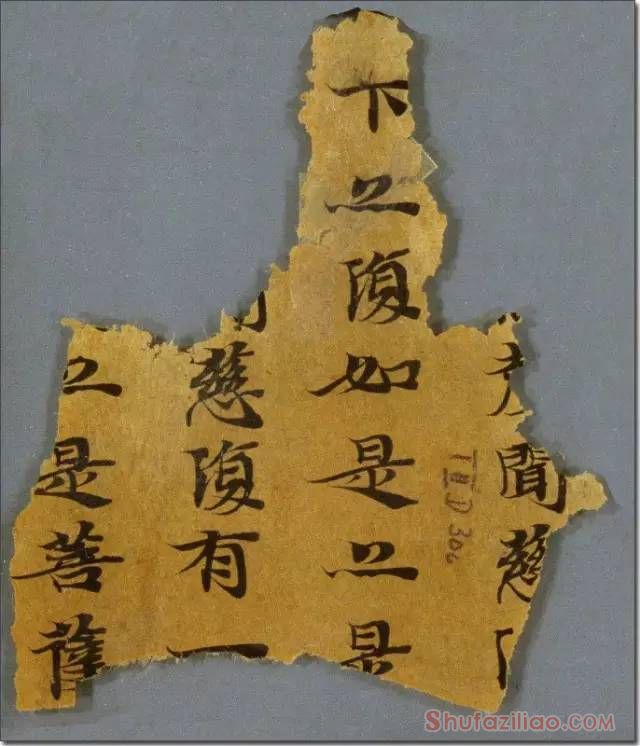 聞慈
下之復如是之是
慈復有一
之是菩薩
T II D 306
Shufaziliao.COM